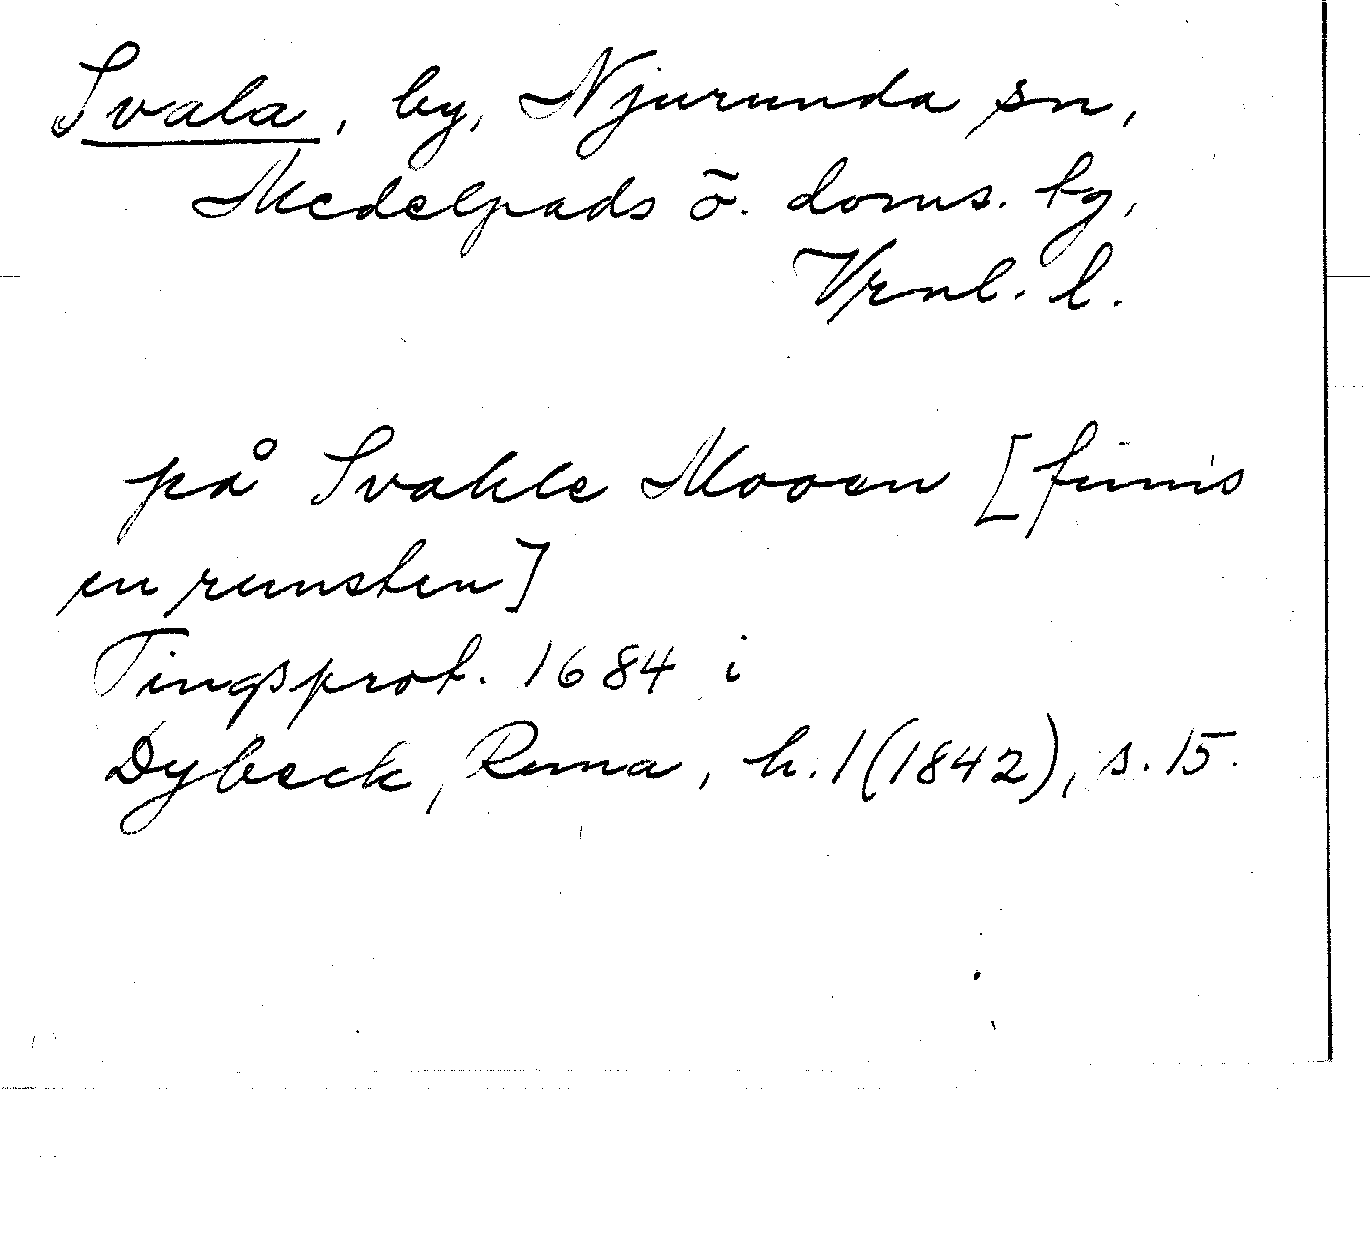 Svala, by, Njurunda sn,
Medelpads ö. doms. tg,
Vrnl. l.
på Svahle Mooen [finnis
en runsten]
Tingsprot. 1684 i
Dybeck, Runa, h. 1 (1842), s. 15.